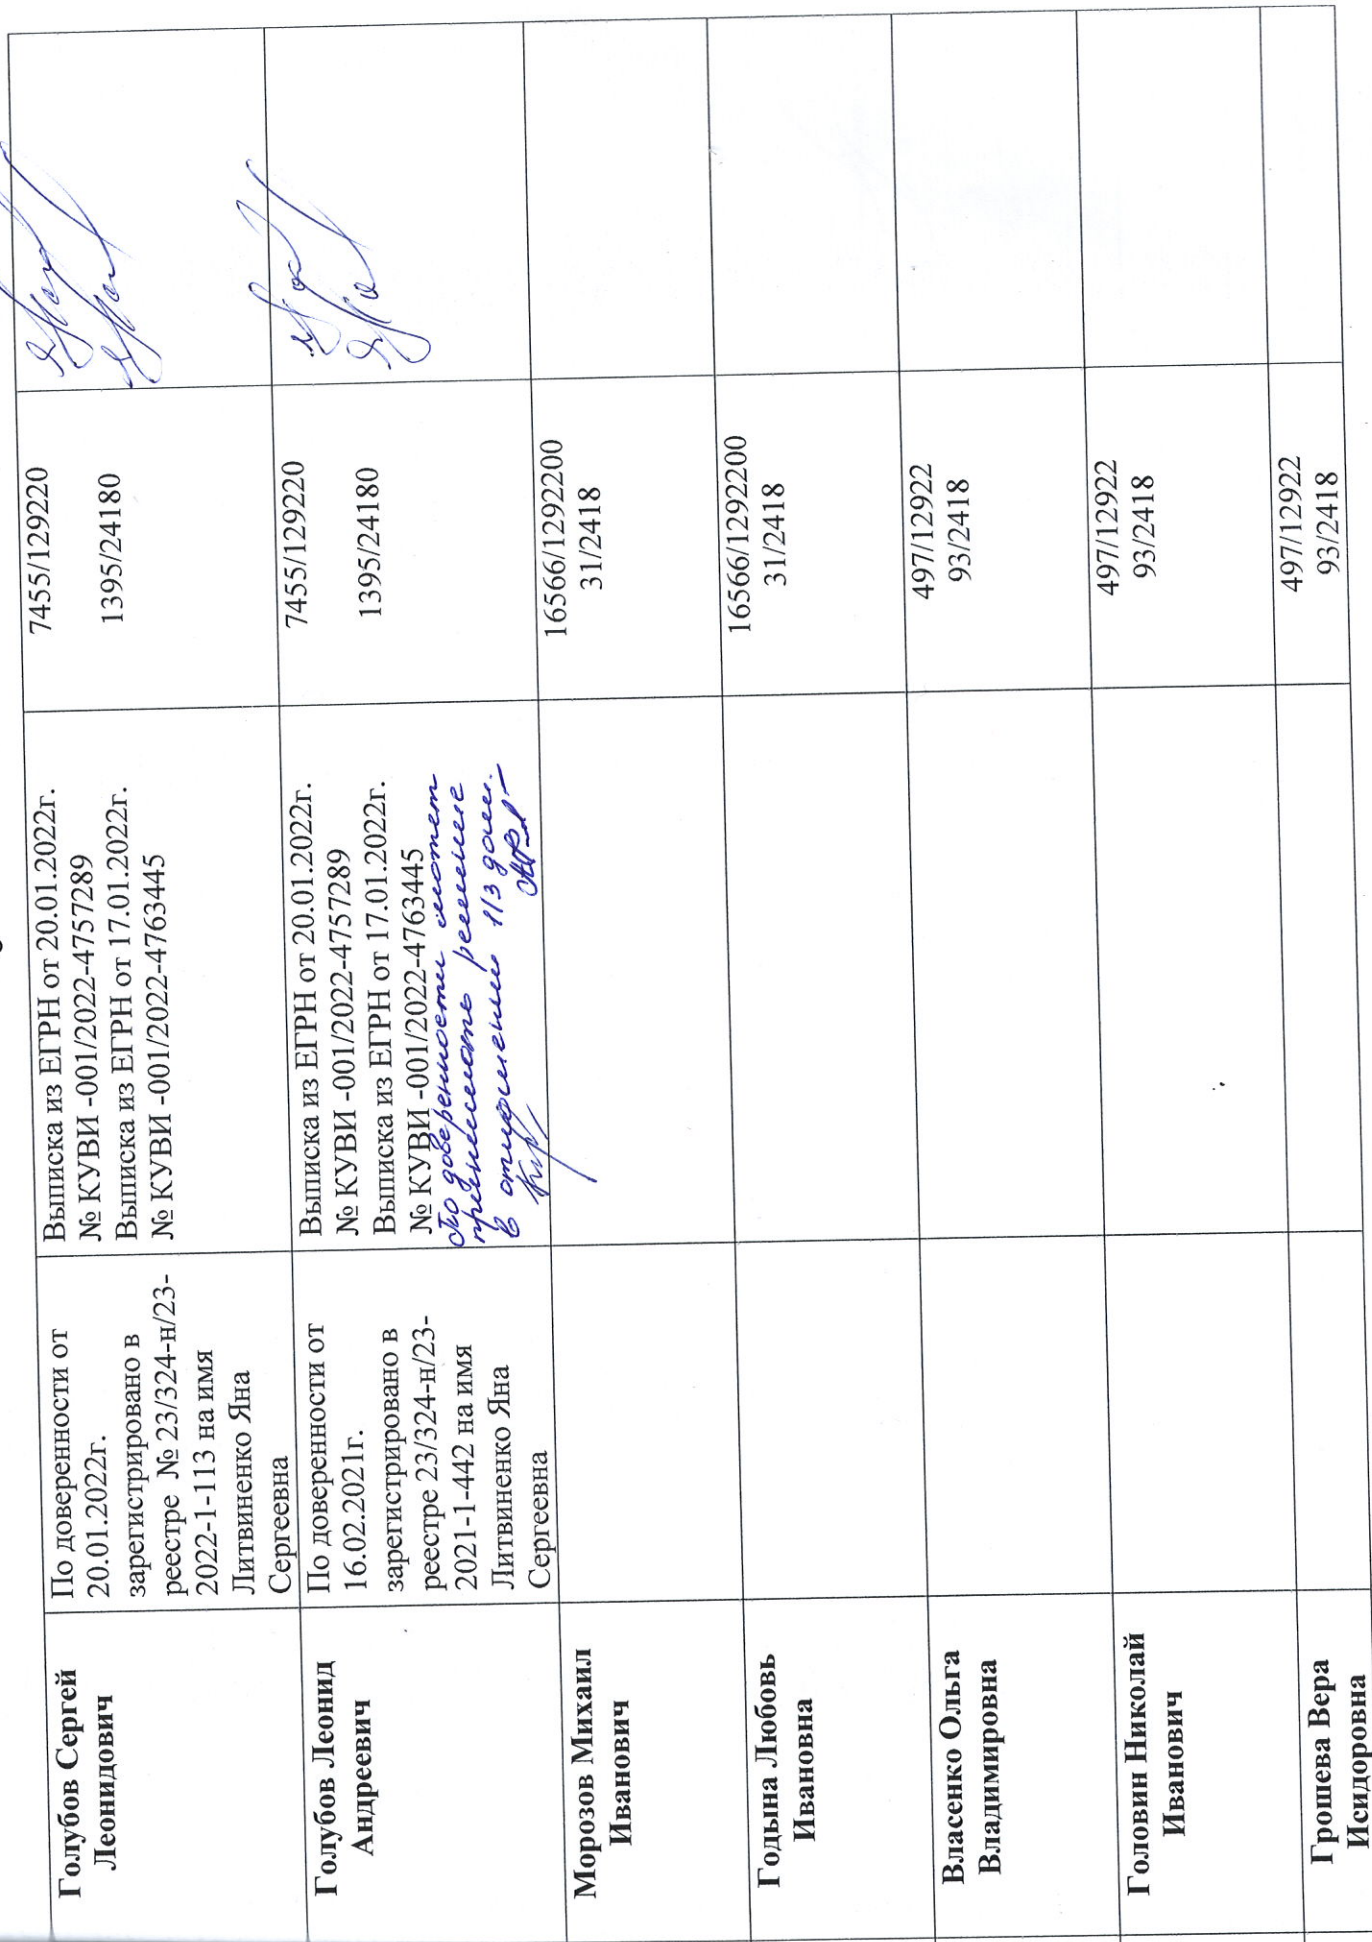 Голубов Сергей
Леонидович
По доверенности от
20.01.2022г.
зарегистрировано в
реестре № 23/324-н/23-
2022-1-113 на имя
Литвиненко Яна
Сергеевна
Выписка из ЕГРН от 20.01.2022г.
№ КУВИ -001/2022-4757289
Выписка из ЕГРН от 17.01.2022г.
№ КУВИ -001/2022-4763445
7455/129220
1395/24180
Голубов Леонид
Андреевич
По доверенности от
16.02.2021г.
зарегистрировано в
реестре 23/324-н/23-
2021-1-442 на имя
Литвиненко Яна
Сергеевна
Выписка из ЕГРН от 20.01.2022г.
№ КУВИ -001/2022-4757289
Выписка из ЕГРН от 17.01.2022г.
№ КУВИ -001/2022-4763445
По доверенности может
принимать решение
в отношении 1/3 доли.
7455/129220
1395/24180
Морозов Михаил
Иванович
16566/1292200
31/2418
Годына Любовь
Ивановна
16566/1292200
31/2418
Власенко Ольга
Владимировна
497/12922
93/2418
Головин Николай
Иванович
497/12922
93/2418
Грошева Вера
Исидоровна
497/12922
93/2418